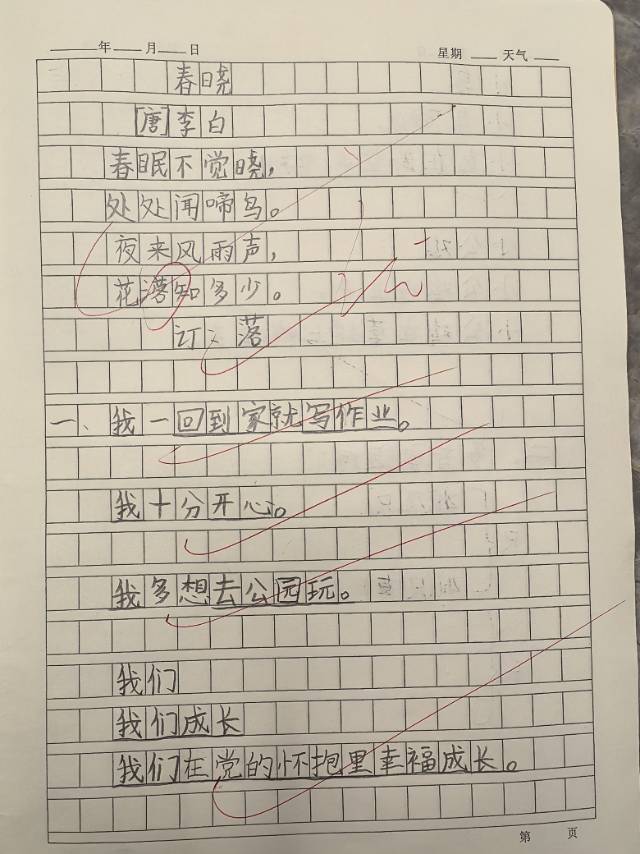 年 月 日 星期 天气
春晓
[唐]李白
春眠不觉晓,
处处闻啼鸟。
夜来风雨声,
花落知多少。
订:落
一、我一回到家就写作业。
我十分开心。
我多想去公园玩。
我们
我们成长
我们在党的怀抱里幸福成长。
第 页